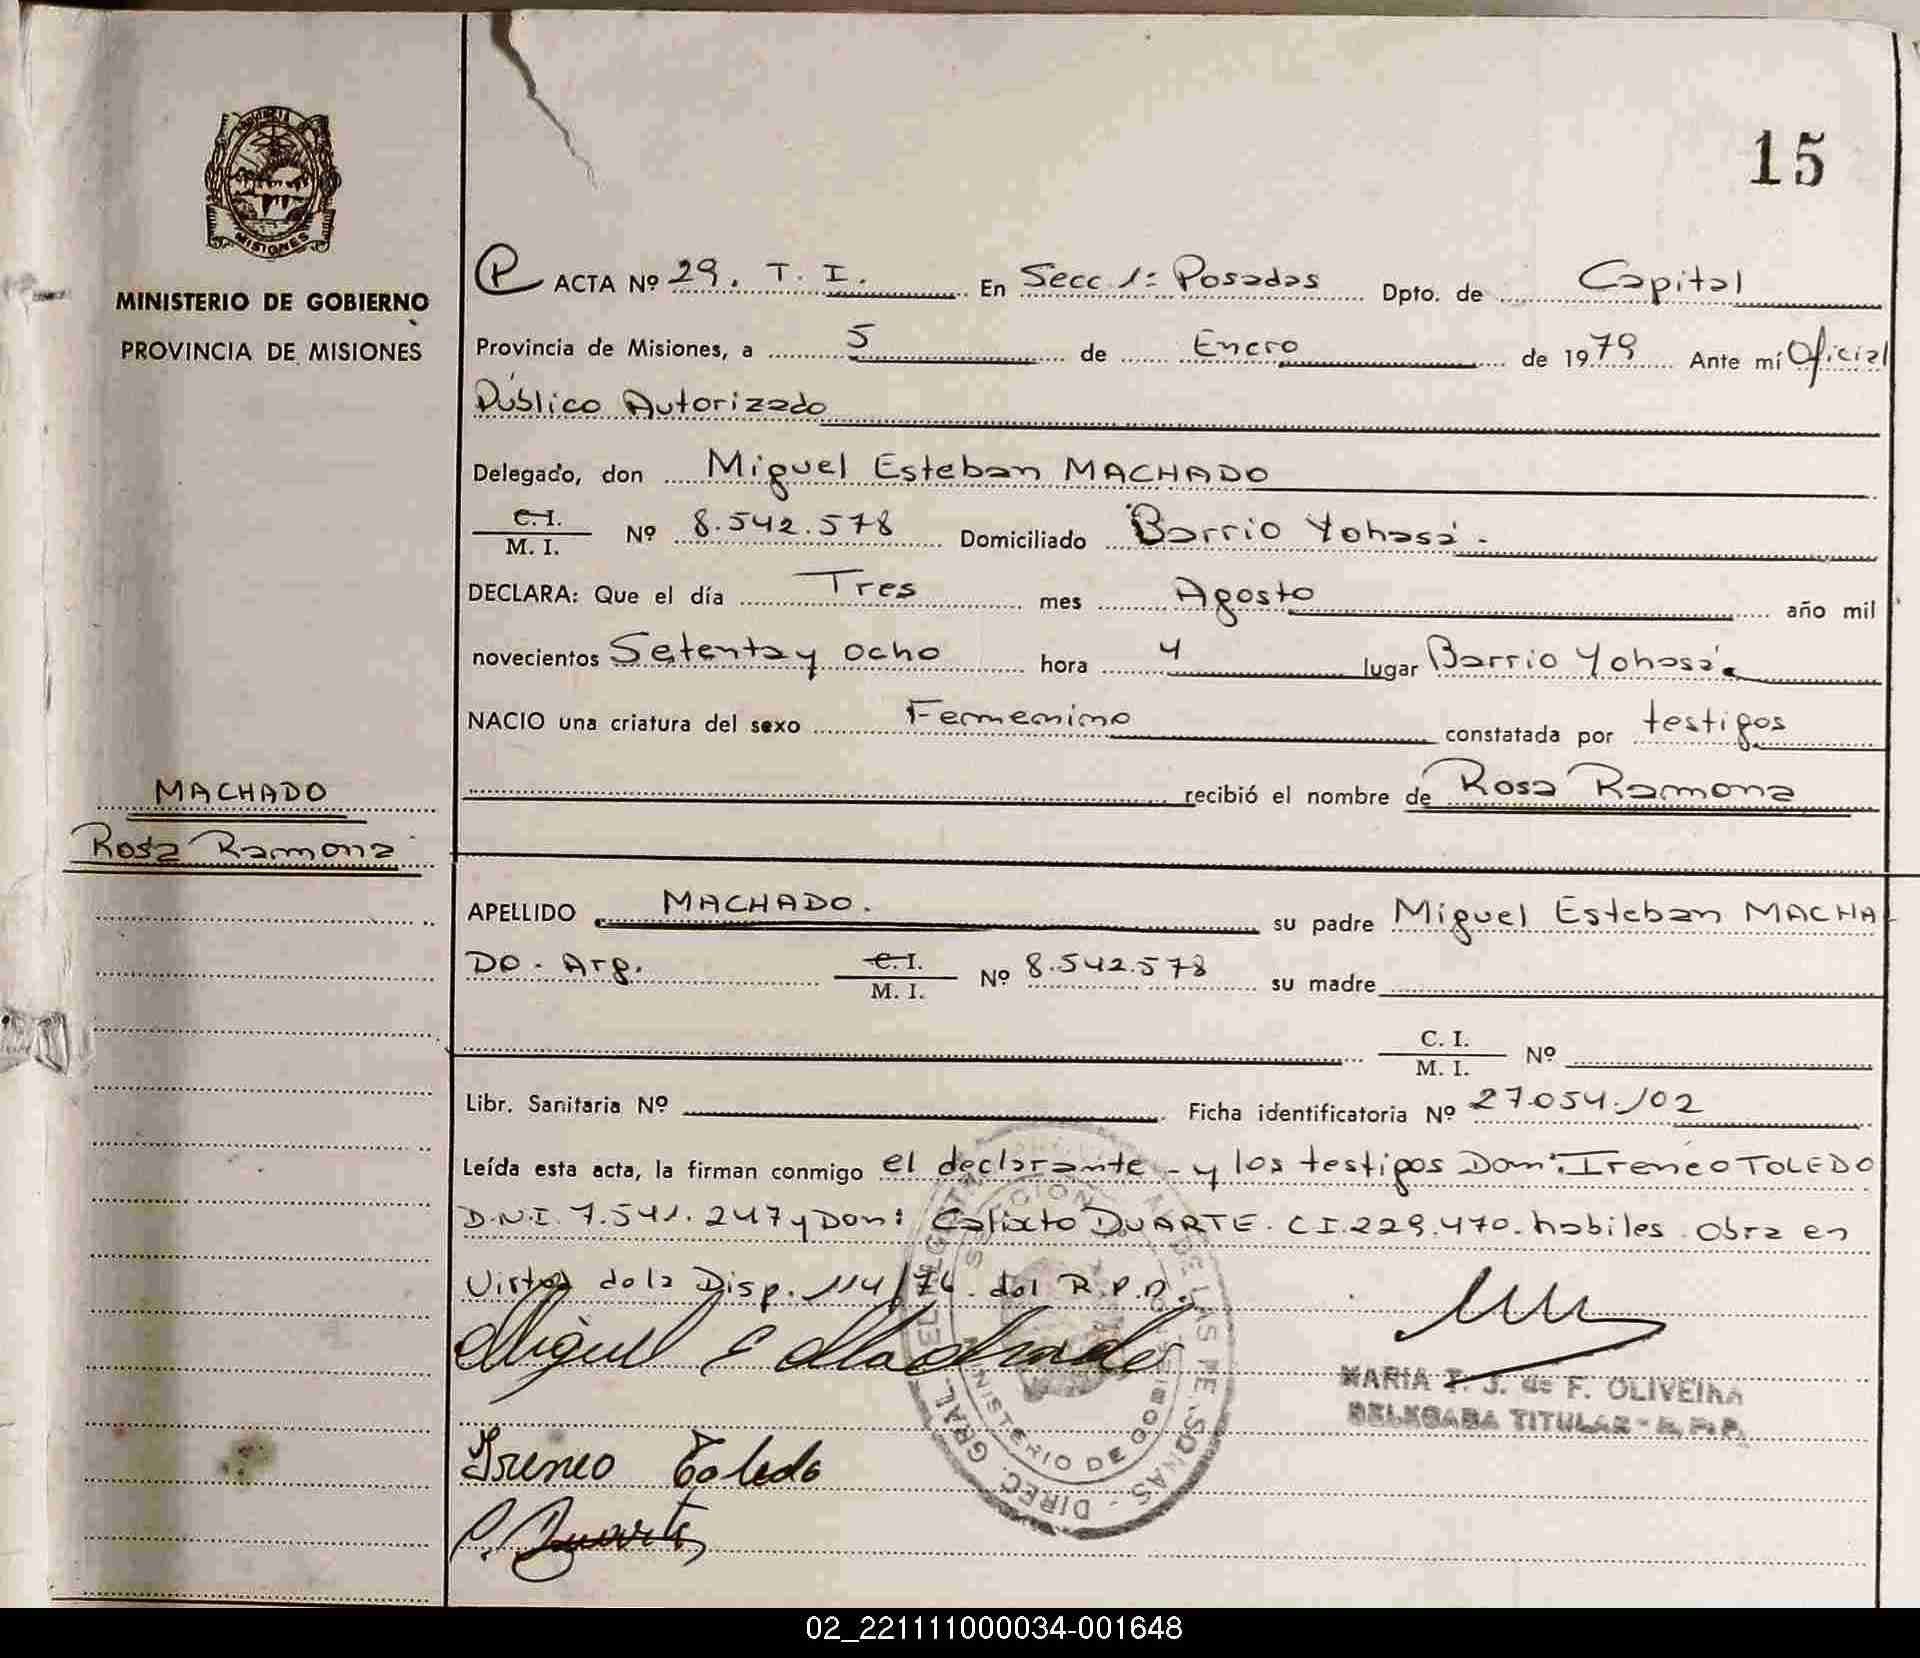 15
MISIONES
MINISTERIO DE GOBIERNO
PROVINCIA DE MISIONES
P ACTA Nº 29. T. I. En Secc 1ª Posadas Dpto. de Capital
Provincia de Misiones, a 5 de Enero de 1979 Ante mí Oficial
Público Autorizado
Delegado, don Miguel Esteban MACHADO
C.I. / M. I. Nº 8.542.578 Domiciliado Barrio Yohasá.
DECLARA: Que el día Tres mes Agosto año mil
novecientos Setenta y ocho hora 4 lugar Barrio Yohasá
NACIO una criatura del sexo Femenino constatada por testigos
recibió el nombre de Rosa Ramona
MACHADO
Rosa Ramona
APELLIDO MACHADO. su padre Miguel Esteban MACHA
DO. Arg. C.I. / M. I. Nº 8.542.578 su madre
C. I. / M. I. Nº
Libr. Sanitaria Nº Ficha identificatoria Nº 27.054.102
Leída esta acta, la firman conmigo el declarante - y los testigos Don: Ireneo TOLEDO
D.N.I. 7.541.247 y Don: Calixto DUARTE. C I. 229.470. habiles. Obra en
Virtud de la Disp. 114/76. del R.P.P.
Miguel E Machado
MARIA T. J. de F. OLIVEIRA
DELEGADA TITULAR - R. P. P.
Ireneo Toledo
C. Duarte
DIREC. GRAL. DEL DE LAS PERSONAS
MINISTERIO DE GOBIERNO
02_221111000034-001648